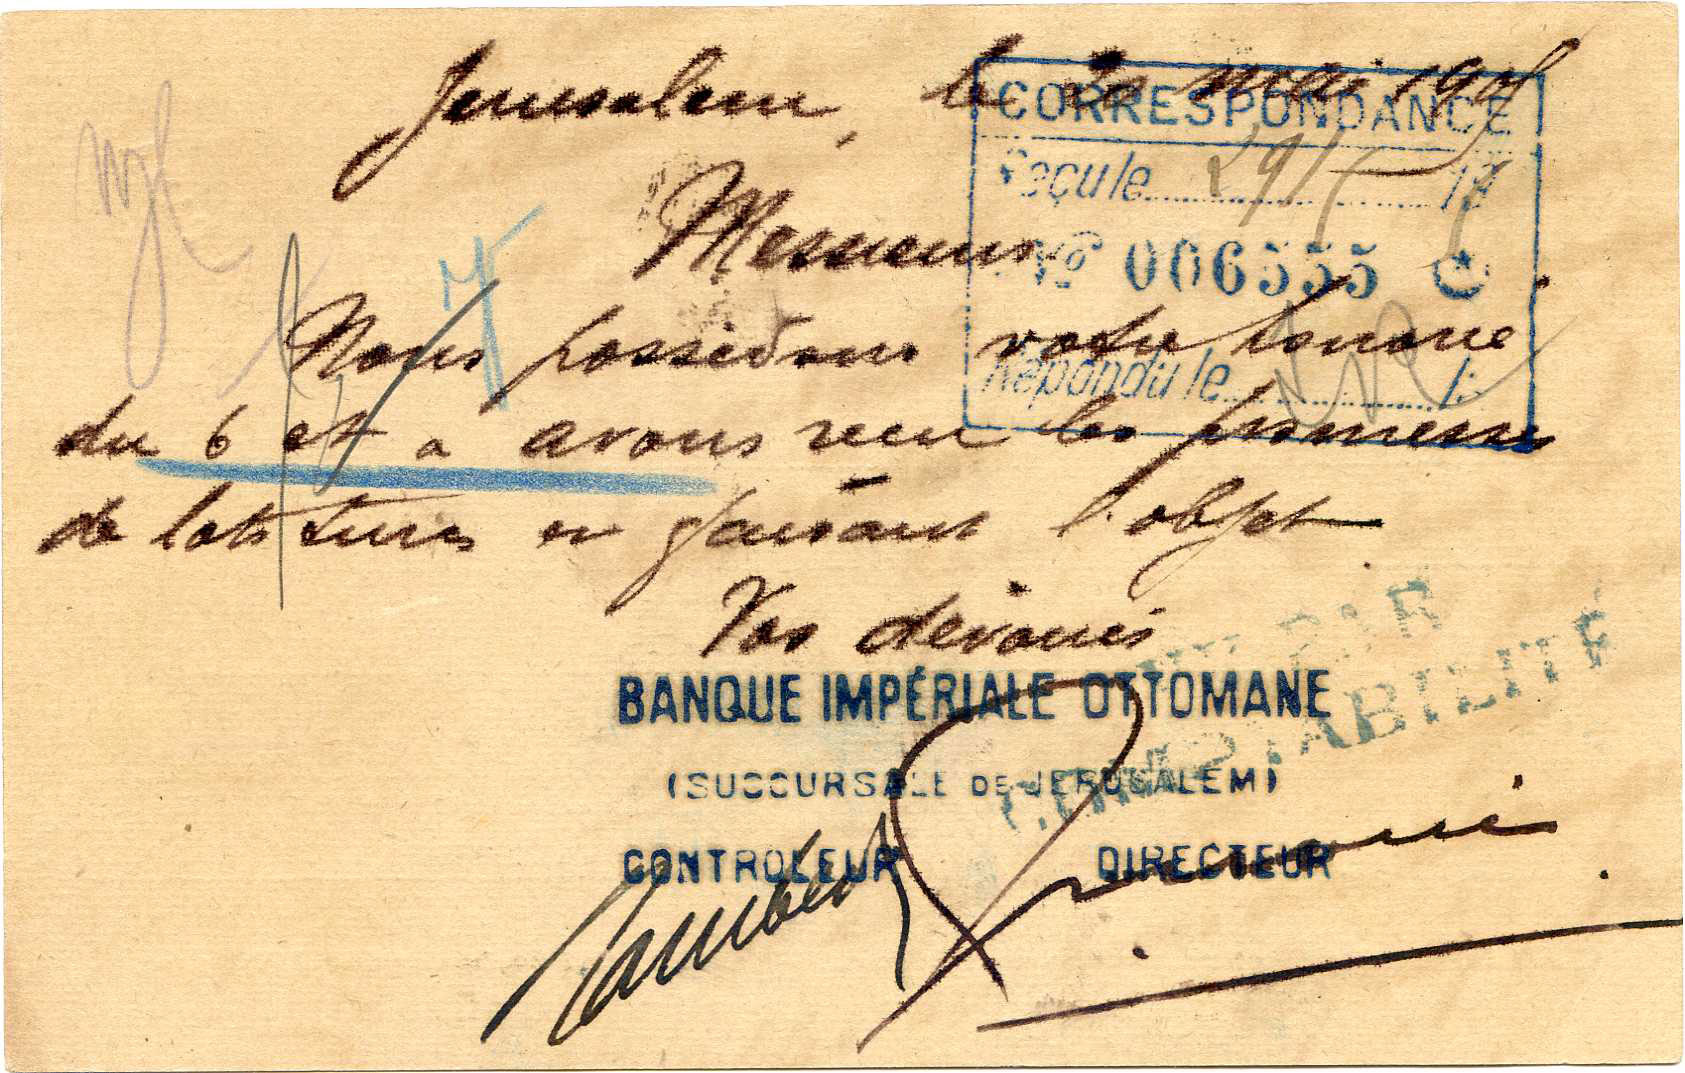 Jerusalem, le 20 mai
CORRESPONDANCE
Reçu le 29/5
No 006555
Répondu le
Messieurs
Nous possédons votre honorée
du 6 et a avons recu les promesses
de lots turcs en faisant l'objet
Vos dévoués
BANQUE IMPÉRIALE OTTOMANE
(SUCCURSALE DE JERUSALEM)
PAR
COMPTABILITÉ
CONTROLEUR DIRECTEUR